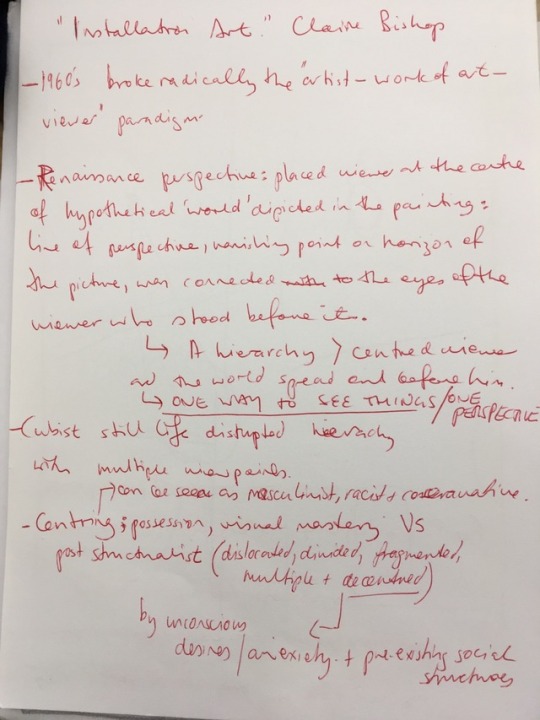 "Installation Art." Claire Bishop
- 1960's broke radically the "artist - work of art -
viewer" paradigm.
- Renaissance perspective: placed viewer at the centre
of hypothetical 'world' dipicted in the painting:
line of perspective, vanishing point on horizon of
the picture, was connected to the eyes of the
viewer who stood before it.
↳ A hierarchy > centred viewer
and the world spread out before him.
↳ ONE WAY TO SEE THINGS / ONE
PERSPECTIVE
- Cubist still life disrupted hierachy
with multiple viewpoints.
can be seen as masculinist, racist + conservative.
- Centring; possession, visual mastery Vs
post structuralist (dislocated, divided, fragmented,
multiple + decentred)
by unconscious
desires / anxiety + pre-existing social
structures